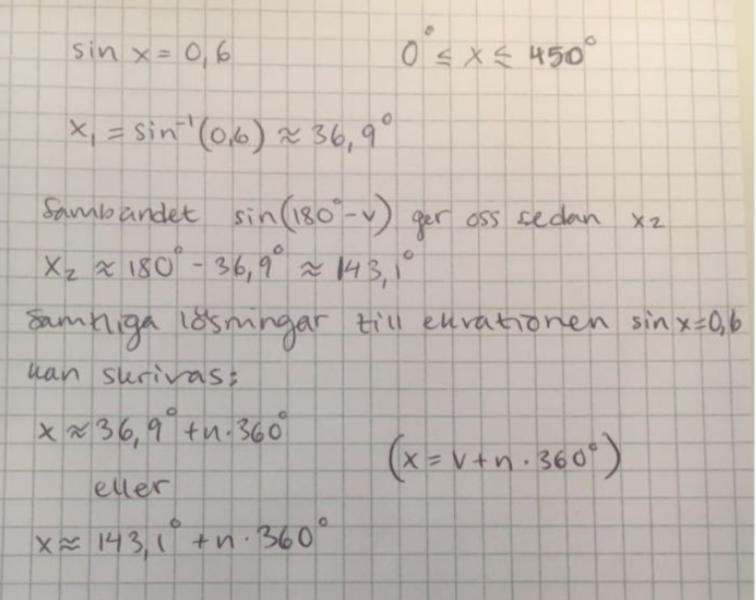 sin x = 0,6 0° ≤ x ≤ 450°
x₁ = sin⁻¹(0,6) ≈ 36,9°
Sambandet sin(180°-v) ger oss sedan x₂
x₂ ≈ 180° - 36,9° ≈ 143,1°
Samtliga lösningar till ekvationen sin x=0,6
kan skrivas:
x ≈ 36,9° + n·360°
(x = v + n · 360°)
eller
x ≈ 143,1° + n · 360°